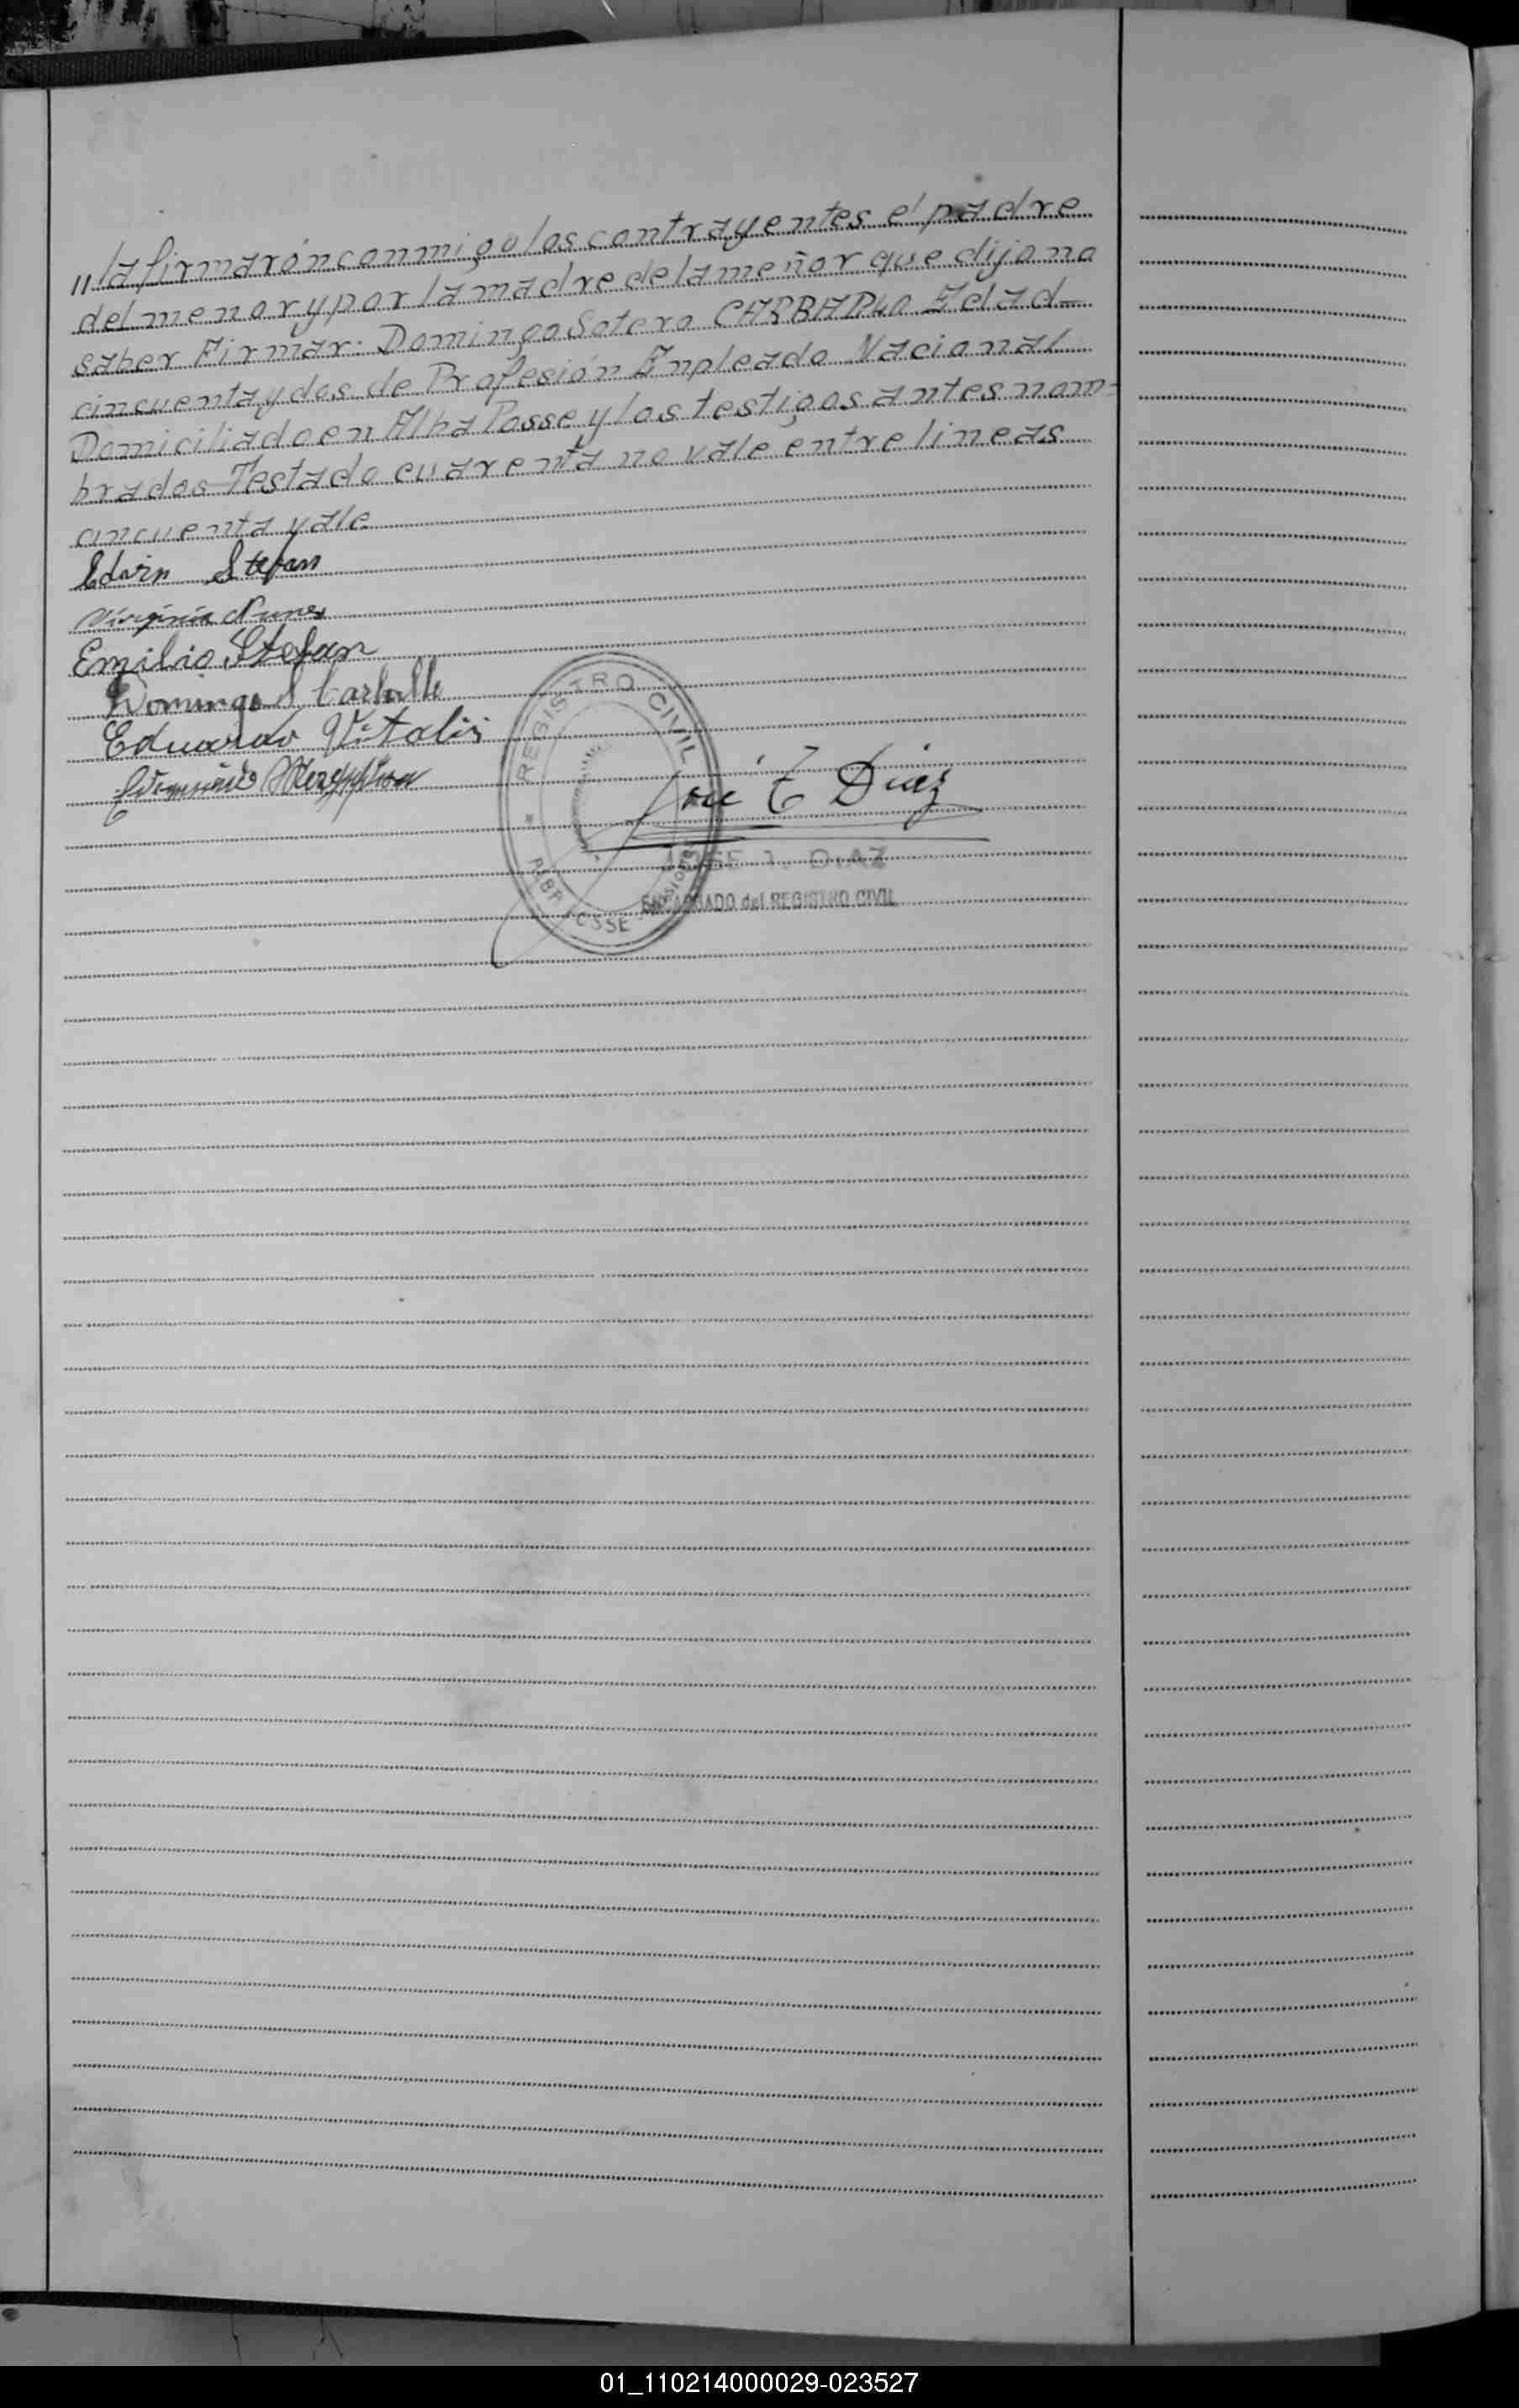 "la firmarón conmigo los contrayentes el padre
del menor y por la madre de la meñor que dijo no
saber Firmar: Domingo Sotero Edad
cincuenta y dos de Profesión Enpleado Nacional
Domiciliado en Alba Posse y los testigos antes nom-
brados Testado cuarenta no vale entre lineas
cincuenta vale
Edvin Stefan
Virginia Nunes
Emilio Stefan
Domingo S Carballo
Eduardo Vitalis
REGISTRO CIVIL
José T Diaz
JOSE T. DIAZ
ALBA POSSE MISIONES
ENCARGADO del REGISTRO CIVIL
01_110214000029-023527